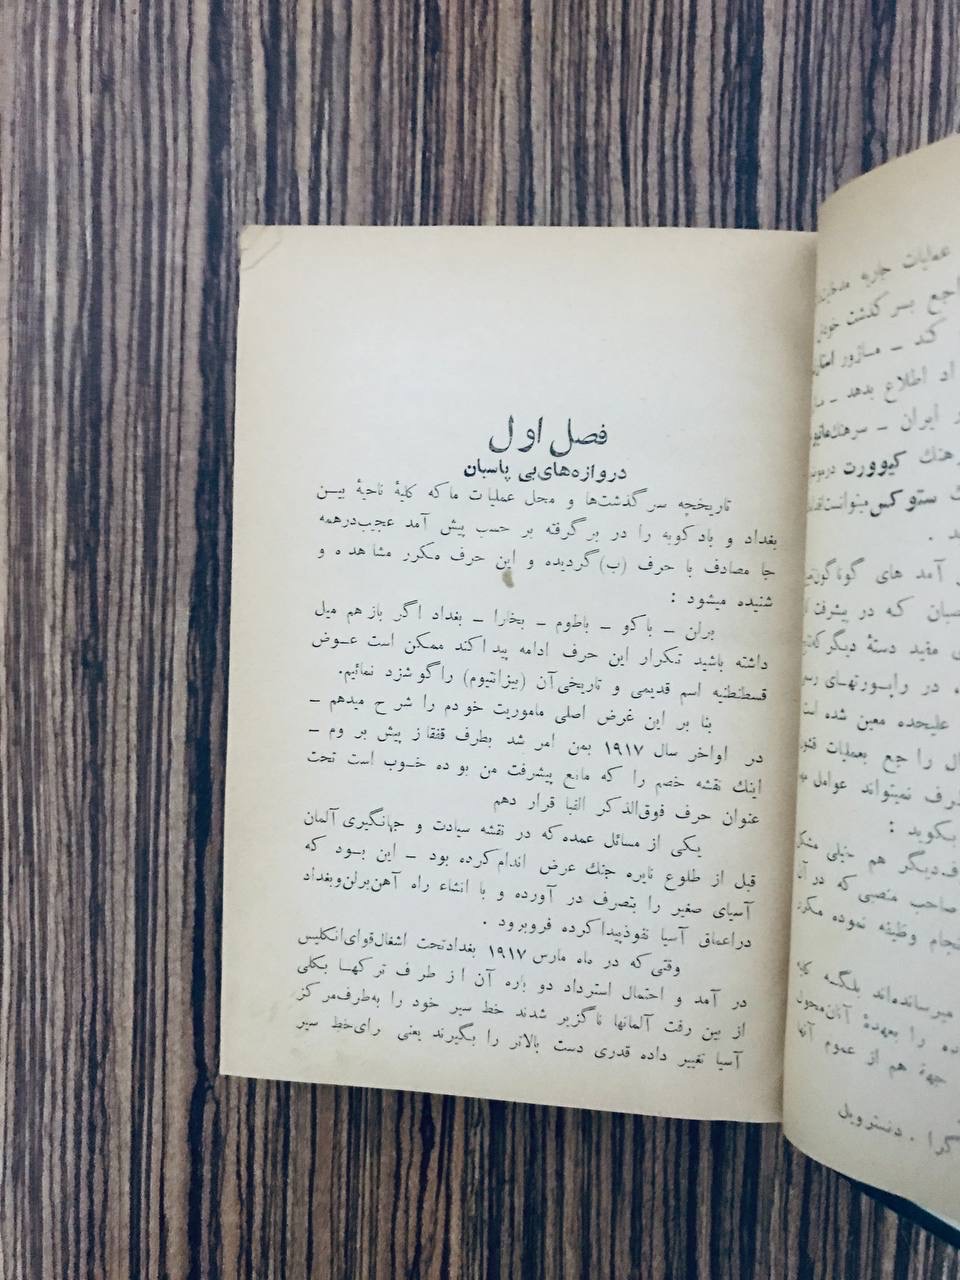 فصل اول
دروازه‌های بی پاسبان
تاریخچه سرگذشت‌ها و محل عملیات ما که کلیهٔ ناحیهٔ بیـن
بغداد و بادکوبه را در بر گرفته بر حسب پیش آمد عجب‌درهمه
جا مصادف با حرف (ب) گردیده و این حرف مکرر مشاهده و
شنیده میشود :
برلن ـ باکو ـ باطوم ـ بخارا ـ بغداد اگر باز هم میل
داشته باشید تکرار این حرف ادامه پیدا کند ممکن است عـوض
قسطنطنیه اسم قدیمی و تاریخی آن (بیزانتیوم) را گوشزد نمائیم.
بنا بر این غرض اصلی ماموریت خودم را شرح میدهم ـ
در اواخر سال ۱۹۱۷ بمن امر شد بطرف قفقاز پیش بروم ـ
اینك نقشه خصم را که مانع پیشرفت من بوده خـوب است تحت
عنوان حرف فوق‌الذکر الفبا قرار دهم
یکی از مسائل عمده که در نقشه سیادت و جهانگیری آلمان
قبل از طلوع نایره جنك عرض اندام کرده بود ـ این بـود که
آسیای صغیر را بتصرف در آورده و با انشاء راه آهن برلن‌وبغداد
دراعماق آسیا نفوذپیداکرده فروبرود .
وقتی که در ماه مارس ۱۹۱۷ بغدادتحت اشغال‌قوای‌انگلیس
در آمد و احتمال استرداد دو باره آن از طرف ترکهـا بکلی
از بین رفت آلمانها ناگزیر شدند خط سیر خود را به‌طرف‌مرکز
آسیا تغییر داده قدری دست بالاتر را بگیرند یعنی رای‌خط سیر
عملیات جاریه
اجع بسرگذشت
کند ـ ماژور
اد اطلاع بدهد ـ
ر ایران ـ
کیوورت
ستوکس
آمد های
صبان که در پیشرفت
مفید دستهٔ دیگر
در راپـورتهـای
علیحده معین شده
راجع بعملیات
نمیتواند عوامل
بگوید :
دیگر هم خیلی
صاحب منصبی که در
نجام وظیفه نموده
میرسانده‌اند
را بعهدهٔ آنان
جهة هم از عموم آنها
دنسترویل